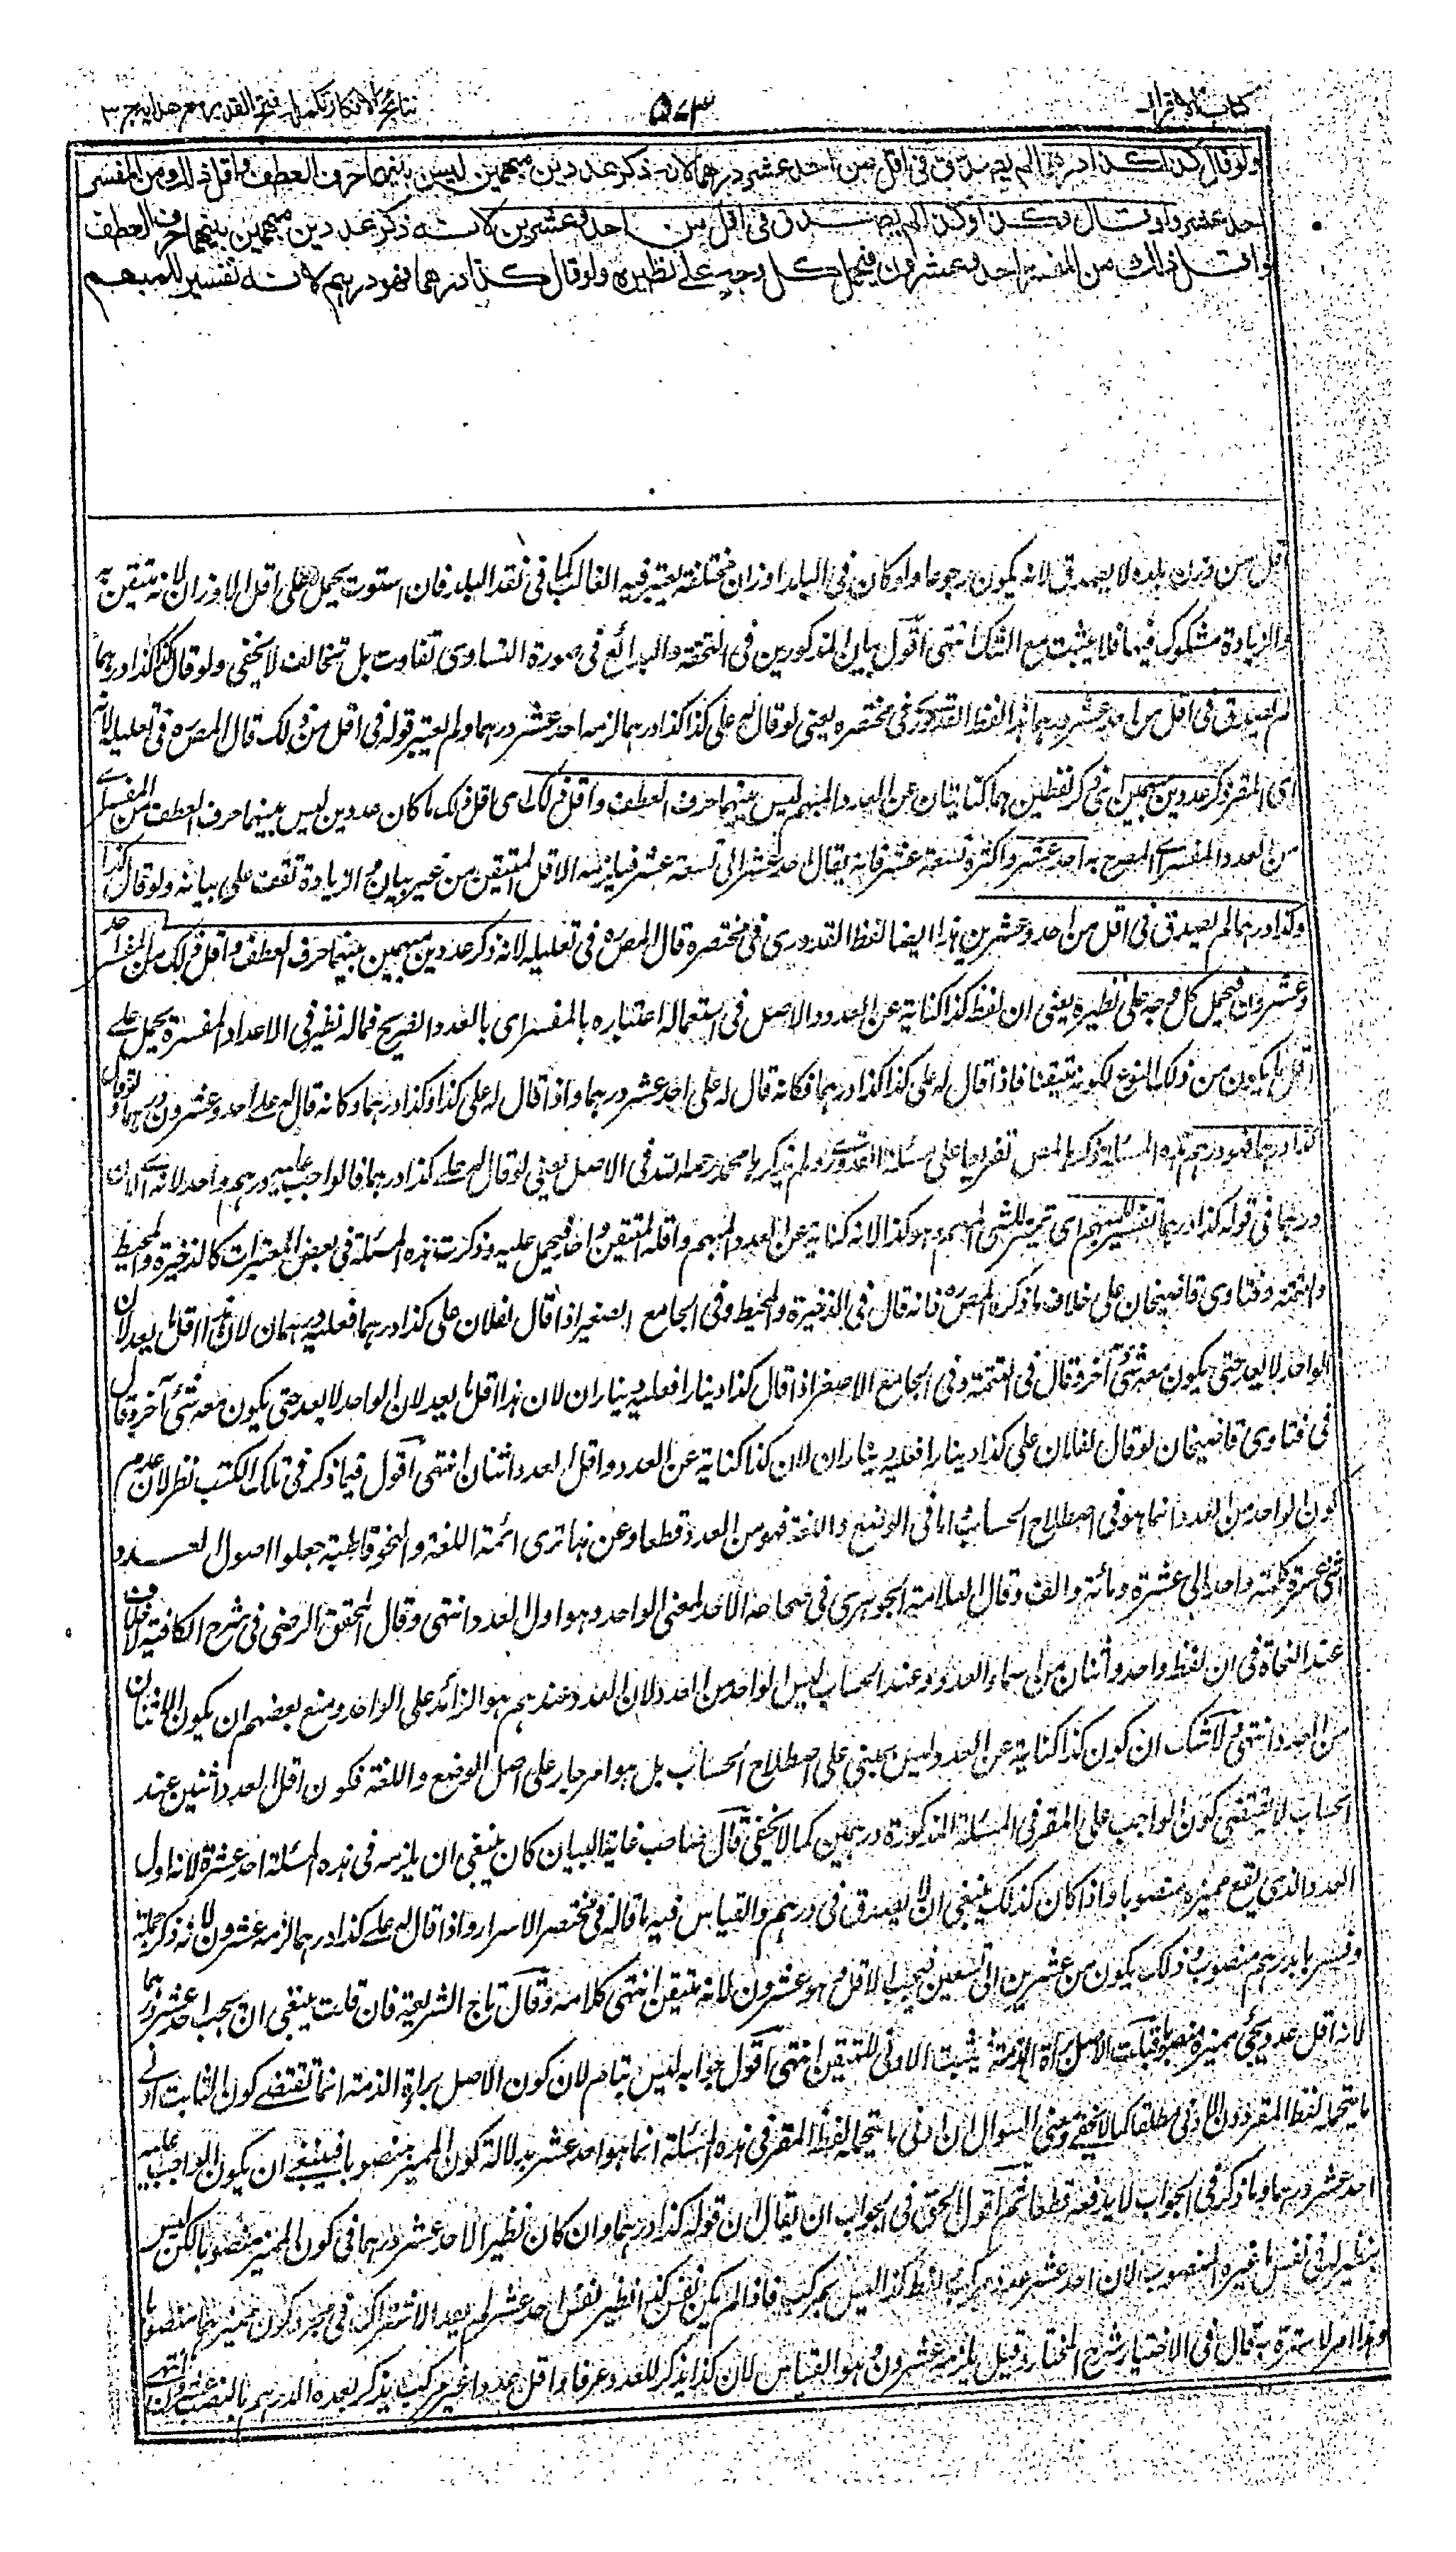 كتاب الاقرار
٥٧٣
نتائج الافكار تكملة فتح القدير مع هداية ج ٣
ولو قال كذا كذا درهما لم يصدق فى اقل من احد عشر درهما لانه ذكر عددين مبهمين ليس بينهما حرف العطف واقل ذلك من المفسر
احد عشر ولو قال كذا وكذا لم يصدق فى اقل من احد وعشرين لانه ذكر عددين مبهمين بينهما حرف العطف
واقل ذلك من المفسر احد وعشرون فيحمل كل وجه على نظيره ولو قال كذا درهما فهو درهم لانه تفسير للمبهم
اقل من وزن بلده لا يصدق لانه يكون رجوعا ولو كان فى البلد اوزان مختلفة يعتبر فيه الغالب كما فى نقد البلد فان استوت يحمل على اقل الاوزان لانه متيقن به
والزيادة مشكوك فيها فلا يثبت مع الشك انتهى اقول بين المذكورين فى التحفة والبدائع فى صورة التساوى تفاوت بل تخالف لا يخفى ولو قال كذا كذا درهما
لم يصدق فى اقل من احد عشر درهما هذا لفظ القدورى فى مختصره يعنى لو قال له على كذا كذا درهما لزمه احد عشر درهما ولم يعتبر قوله فى اقل من ذلك قال المصره فى تعليله لانه
اى المقر ذكر عددين مبهمين اى ذكر لفظين هما كنايتان عن العدد المبهم ليس بينهما حرف العطف واقل ذلك اى اقل ذلك ما كان عددين ليس بينهما حرف العطف من المفسر اے
من العدد المفسر اى المصرح به احد عشر واكثره تسعة عشر فانه يقال احد عشر الى تسعة عشر فيلزمه الاقل المتيقن من غير بيان والزيادة تقف على بيانه ولو قال كذا
وكذا درهما لم يصدق فى اقل من احد وعشرين هذا ايضا لفظ القدورى فى مختصره قال المصره فى تعليله لانه ذكر عددين مبهمين بينهما حرف العطف واقل ذلك من المفسر احد
وعشرون فيحمل كل وجه على نظيره يعنى ان لفظ كذا كناية عن العدد والاصل فى استعماله اعتباره بالمفسر اى بالعدد الصريح فما له نظير فى الاعداد المفسرة يحمل على
اقل ما يكون من ذلك النوع لكونه متيقنا فاذا قال له على كذا كذا درهما فكانه قال له على احد عشر درهما واذا قال له على كذا وكذا درهما وكانه قال له على احد وعشرون درهما ولو قال
كذا درهما فهو درهم هذه المسئلة ذكرها المص تفريعا على مسئلة القدورى ولم يذكرها محمد رحمه الله فى الاصل يعنى لو قال له على كذا درهما فالواجب عليه درهم واحد لانه اے لان
درهما فى قوله كذا درهما تفسير للمبهم اى تمييز للشئ المبهم وهو كذا لانه كناية عن العدد المبهم واقله المتيقن واحد فيحمل عليه وذكرت هذه المسئلة فى بعض المعتبرات كالذخيرة والمحيط
والتتمة وفتاوى قاضيخان على خلاف ما ذكره المصره فانه قال فى الذخيرة والمحيط وفى الجامع الصغير اذا قال لفلان على كذا درهما فعليه درهمان لان هذا اقل ما يعد لان
الواحد لا يعد حتى يكون معه شئ آخر وقال فى التتمة وفى الجامع الاصغر اذا قال كذا دينارا فعليه ديناران لان هذا اقل ما يعد لان الواحد لا يعد حتى يكون معه شئ آخر وقال
فى فتاوى قاضيخان لو قال لفلان على كذا دينارا فعليه ديناران لان كذا كناية عن العدد واقل العدد اثنان انتهى اقول فيما ذكر فى تلك الكتب نظر لان عدم
كون الواحد من العدد انما هو فى اصطلاح الحساب اما فى الوضع واللغة فهو من العدد قطعا وعن هذا ترى ائمة اللغة والنحو قاطبة جعلوا اصول العدد
اثنى عشرة كلمة واحد الى عشرة ومائة والف وقال العلامة الجوهرى فى صحاحه الاحد لمعنى الواحد وهو اول العدد انتهى وقال المحقق الرضى فى شرح الكافية لا خلاف
عند النحاة فى ان لفظ واحد واثنان من اسماء العدد وعند الحساب ليس الواحد من العدد لان العدد عندهم هو الزائد على الواحد ومنع بعضهم ان يكون الاثنان
من العدد انتهى ولا شك ان كون كذا كناية عن العدد ليس بمبنى على اصطلاح الحساب بل هو امر جار على اصل الوضع واللغة فكون اقل العدد اثنين عند
الحساب لا يقتضى كون الواجب على المقر فى المسئلة المذكورة درهمين كما لا يخفى قال صاحب غاية البيان كان ينبغى ان يلزمه فى هذه المسئلة احد عشرة لانه اول
العدد الذى يقع مميزه منصوبا واذا كان كذلك ينبغى ان لا يصدق فى درهم والقياس فيه ما قاله فى مختصر الاسرار واذا قال له على كذا درهما لزمه عشرون لانه ذكر جملة
وفسرها بدرهم منصوب وذلك يكون من عشرين الى تسعين فيجب الاقل وهو عشرون لانه متيقن انتهى كلامه وقال تاج الشريعة فان قلت ينبغى ان يجب احد عشر درهما
لانه اقل عدد يجئ مميزه منصوبا قلت الاصل براءة الذمة فيثبت الادنى للتيقن انتهى اقول جوابه ليس بتام لان كون الاصل براءة الذمة انما يقتضى كون الثابت ادنے
ما يتحمله لفظ المقر دون الادنى مطلقا كما لا يخفى ومعنى السؤال ان ادنى ما يتحمله لفظ المقر فى هذه المسئلة انما هو احد عشر بدلالة كون المميز منصوبا فينبغى ان يكون الواجب عليه
احد عشر درهما وما ذكر فى الجواب لا يدفعه قطعا ثم اقول الحق فى الجواب ان يقال ان قوله كذا درهما وان كان نظير الاحد عشر درهما فى كون المميز منصوبا لكن ليس
بنظير له فى نفس مميزه المنصوب لان احد عشر عدد مركب ولفظ كذا ليس بمركب فاذا لم يكن نفس كذا نظير نفس احد عشر لم يفد الاشتراك فى مجرد كون مميزهما منصوبا
وهذا امر لا سترة به قال فى الاختيار شرح المختار وقيل يلزمه عشرون وهو القياس لان كذا يذكر للعدد عرفا واقل عدد غير مركب يذكر بعده الدرهم بالنصب عشرون انتهى